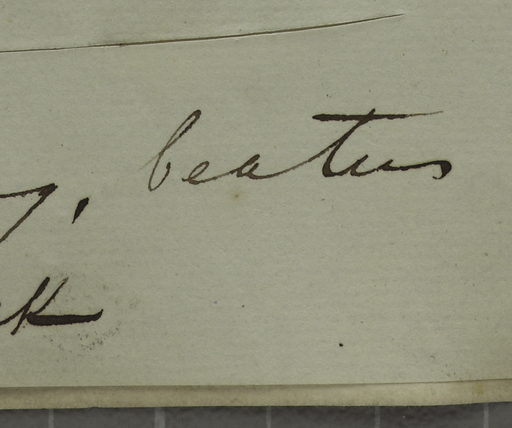 , beatus
k